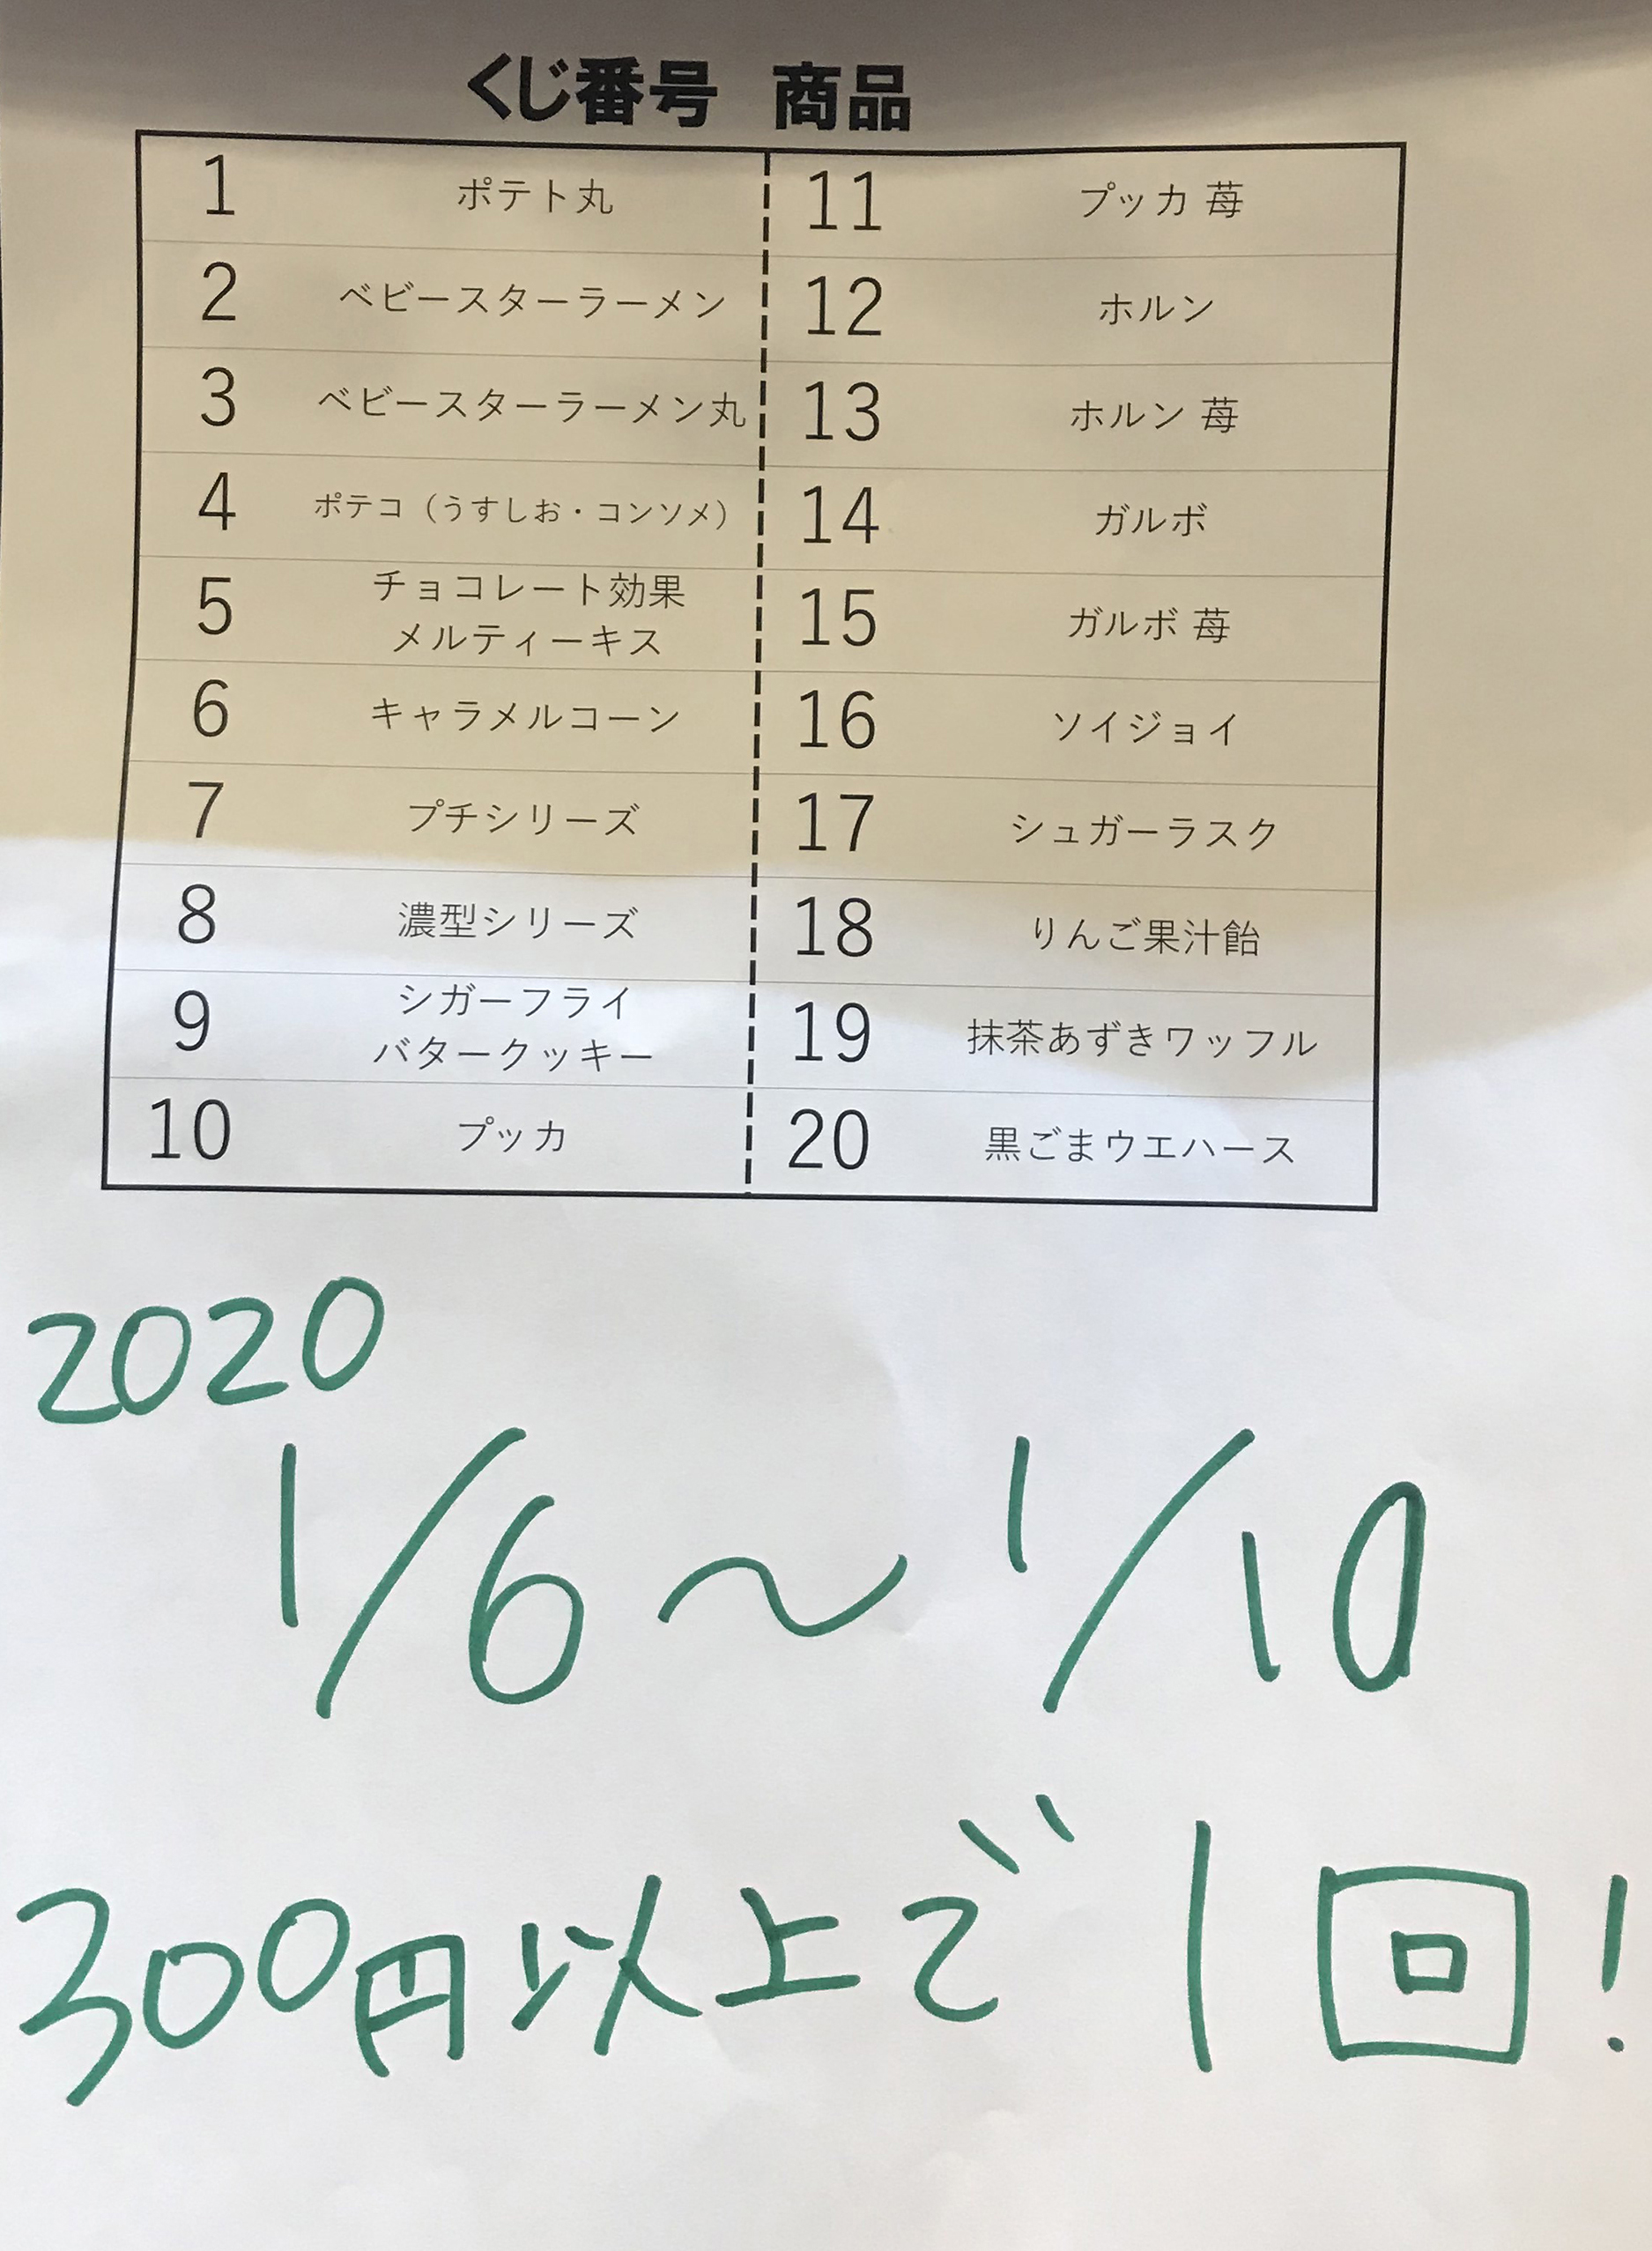 くじ番号 商品
1 ポテト丸 11 プッカ 苺
2 ベビースターラーメン 12 ホルン
3 ベビースターラーメン丸 13 ホルン 苺
4 ポテコ（うすしお・コンソメ） 14 ガルボ
5 チョコレート効果
メルティーキス 15 ガルボ 苺
6 キャラメルコーン 16 ソイジョイ
7 プチシリーズ 17 シュガーラスク
8 濃型シリーズ 18 りんご果汁飴
9 シガーフライ
バタークッキー 19 抹茶あずきワッフル
10 プッカ 20 黒ごまウエハース
2020
1/6～1/10
300円以上で1回!